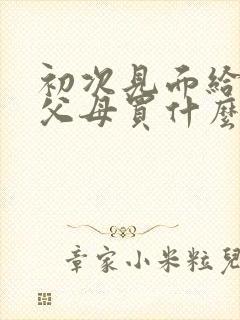 初次見而給
父母買什麼
章家小米粒兒